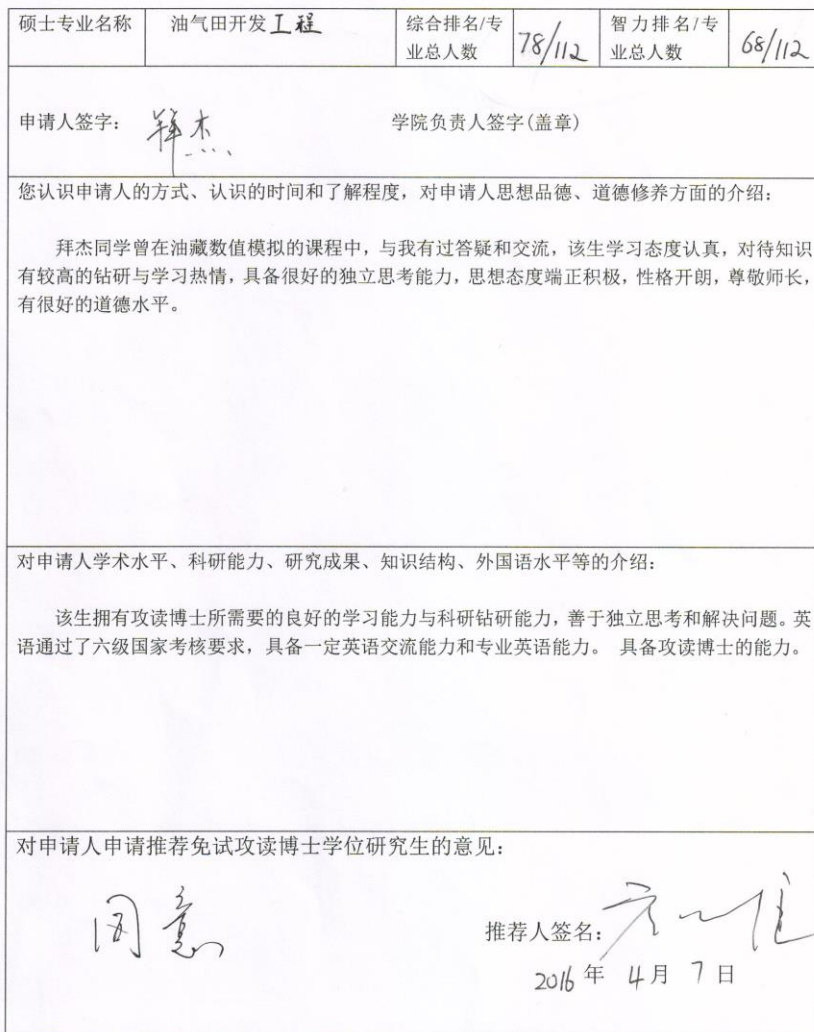 硕士专业名称 油气田开发工程 综合排名/专 78/112 智力排名/专 68/112
业总人数 业总人数
申请人签字: 拜杰 学院负责人签字(盖章)
您认识申请人的方式、认识的时间和了解程度,对申请人思想品德、道德修养方面的介绍:
拜杰同学曾在油藏数值模拟的课程中,与我有过答疑和交流,该生学习态度认真,对待知识
有较高的钻研与学习热情,具备很好的独立思考能力,思想态度端正积极,性格开朗,尊敬师长,
有很好的道德水平。
对申请人学术水平、科研能力、研究成果、知识结构、外国语水平等的介绍:
该生拥有攻读博士所需要的良好的学习能力与科研钻研能力,善于独立思考和解决问题。英
语通过了六级国家考核要求,具备一定英语交流能力和专业英语能力。 具备攻读博士的能力。
对申请人申请推荐免试攻读博士学位研究生的意见:
同意
推荐人签名:
2016 年 4 月 7 日